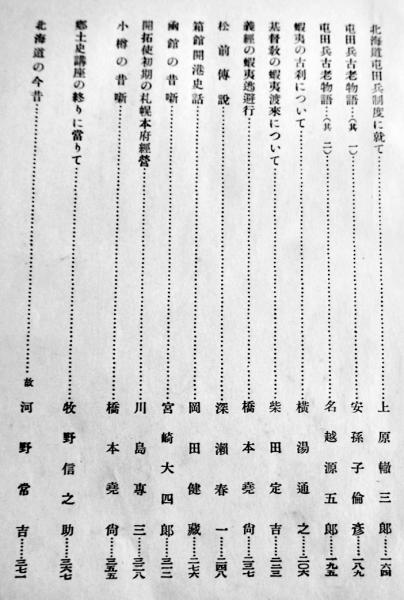 北海道屯田兵制度に就て……上原轍三郎……一六四
屯田兵古老物語…(其 一)……安孫子倫彥……一八九
屯田兵古老物語…(其 二)……名越源五郎……一九五
蝦夷の古刹について……橫湯通之……二〇六
基督敎の蝦夷渡來について……柴田定吉……二二三
義經の蝦夷逃避行……橋本堯尙……二三七
松前傳說……深瀨春一……二四八
箱館開港史話……岡田健藏……二七六
函館の昔噺……宮崎大四郎……三一二
開拓使初期の札幌本府經營……川島專三……三二八
小樽の昔噺……橋本堯尙……三五五
鄕土史講座の終りに當りて……牧野信之助……三六七
北海道の今昔……故 河野常吉……三七一